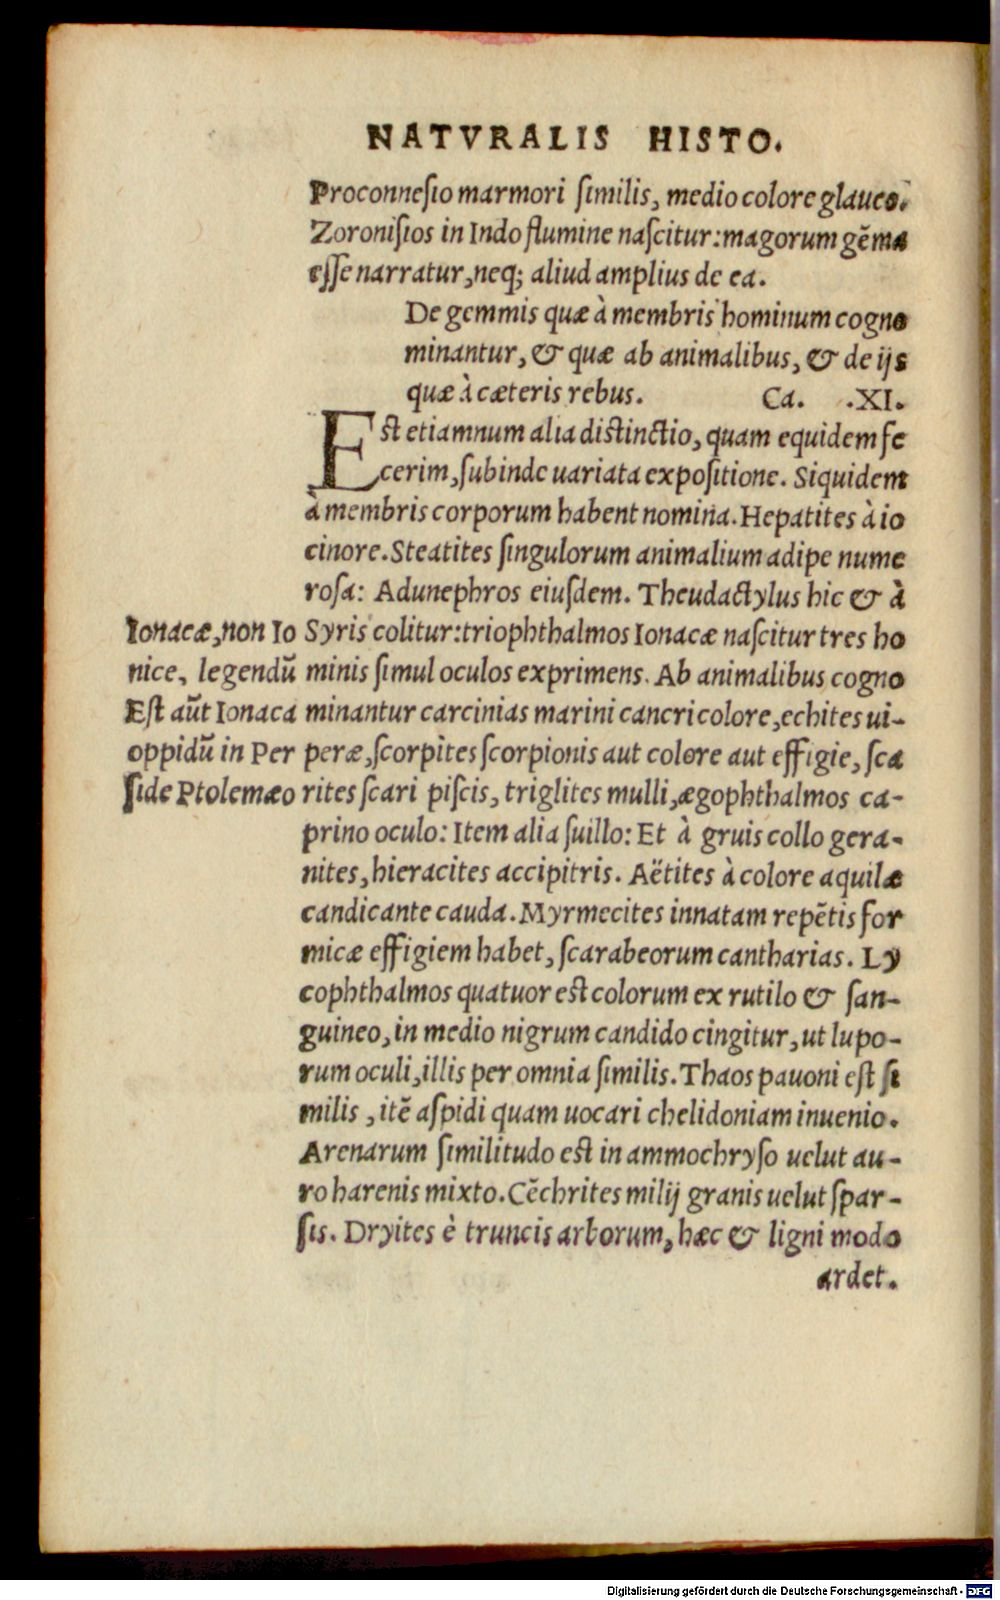 NATVRALIS HISTO.
Proconneſio marmori ſimilis, medio colore glauco.
Zoroniſios in Indo flumine naſcitur: magorum gẽma
eſſe narratur, neq; aliud amplius de ea.
De gemmis quæ à membris hominum cogno
minantur, & quæ ab animalibus, & de ijs
quæ à cæteris rebus. Ca. .XI.
Eſt etiamnum alia diſtinctio, quam equidem fe
cerim, ſubinde uariata expoſitione. Siquidem
à membris corporum habent nomina. Hepatites à io
cinore. Steatites ſingulorum animalium adipe nume
roſa: Adunephros eiuſdem. Theudactylus hic & à
Syris colitur: triophthalmos Ionacæ naſcitur tres ho
minis ſimul oculos exprimens. Ab animalibus cogno
minantur carcinias marini cancri colore, echites ui-
peræ, ſcorpìtes ſcorpionis aut colore aut effigie, ſca
rites ſcari piſcis, triglites mulli, ægophthalmos ca-
prino oculo: Item alia ſuillo: Et à gruis collo gera-
nites, hieracites accipitris. Aëtites à colore aquilæ
candicante cauda. Myrmecites innatam repẽtis for
micæ effigiem habet, ſcarabeorum cantharias. Ly
cophthalmos quatuor eſt colorum ex rutilo & ſan-
guineo, in medio nigrum candido cingitur, ut lupo-
rum oculi, illis per omnia ſimilis. Thaos pauoni eſt ſi
milis, itẽ aſpidi quam uocari chelidoniam inuenio.
Arenarum ſimilitudo eſt in ammochryſo uelut au-
ro harenis mixto. Cẽchrites milij granis uelut ſpar-
ſis. Dryites è truncis arborum, hæc & ligni modo
ardet.
Ionacæ, non Io
nice, legendũ
Eſt aũt Ionaca
oppidũ in Per
ſide Ptolemæo
Digitalisierung gefördert durch die Deutsche Forschungsgemeinschaft - DFG